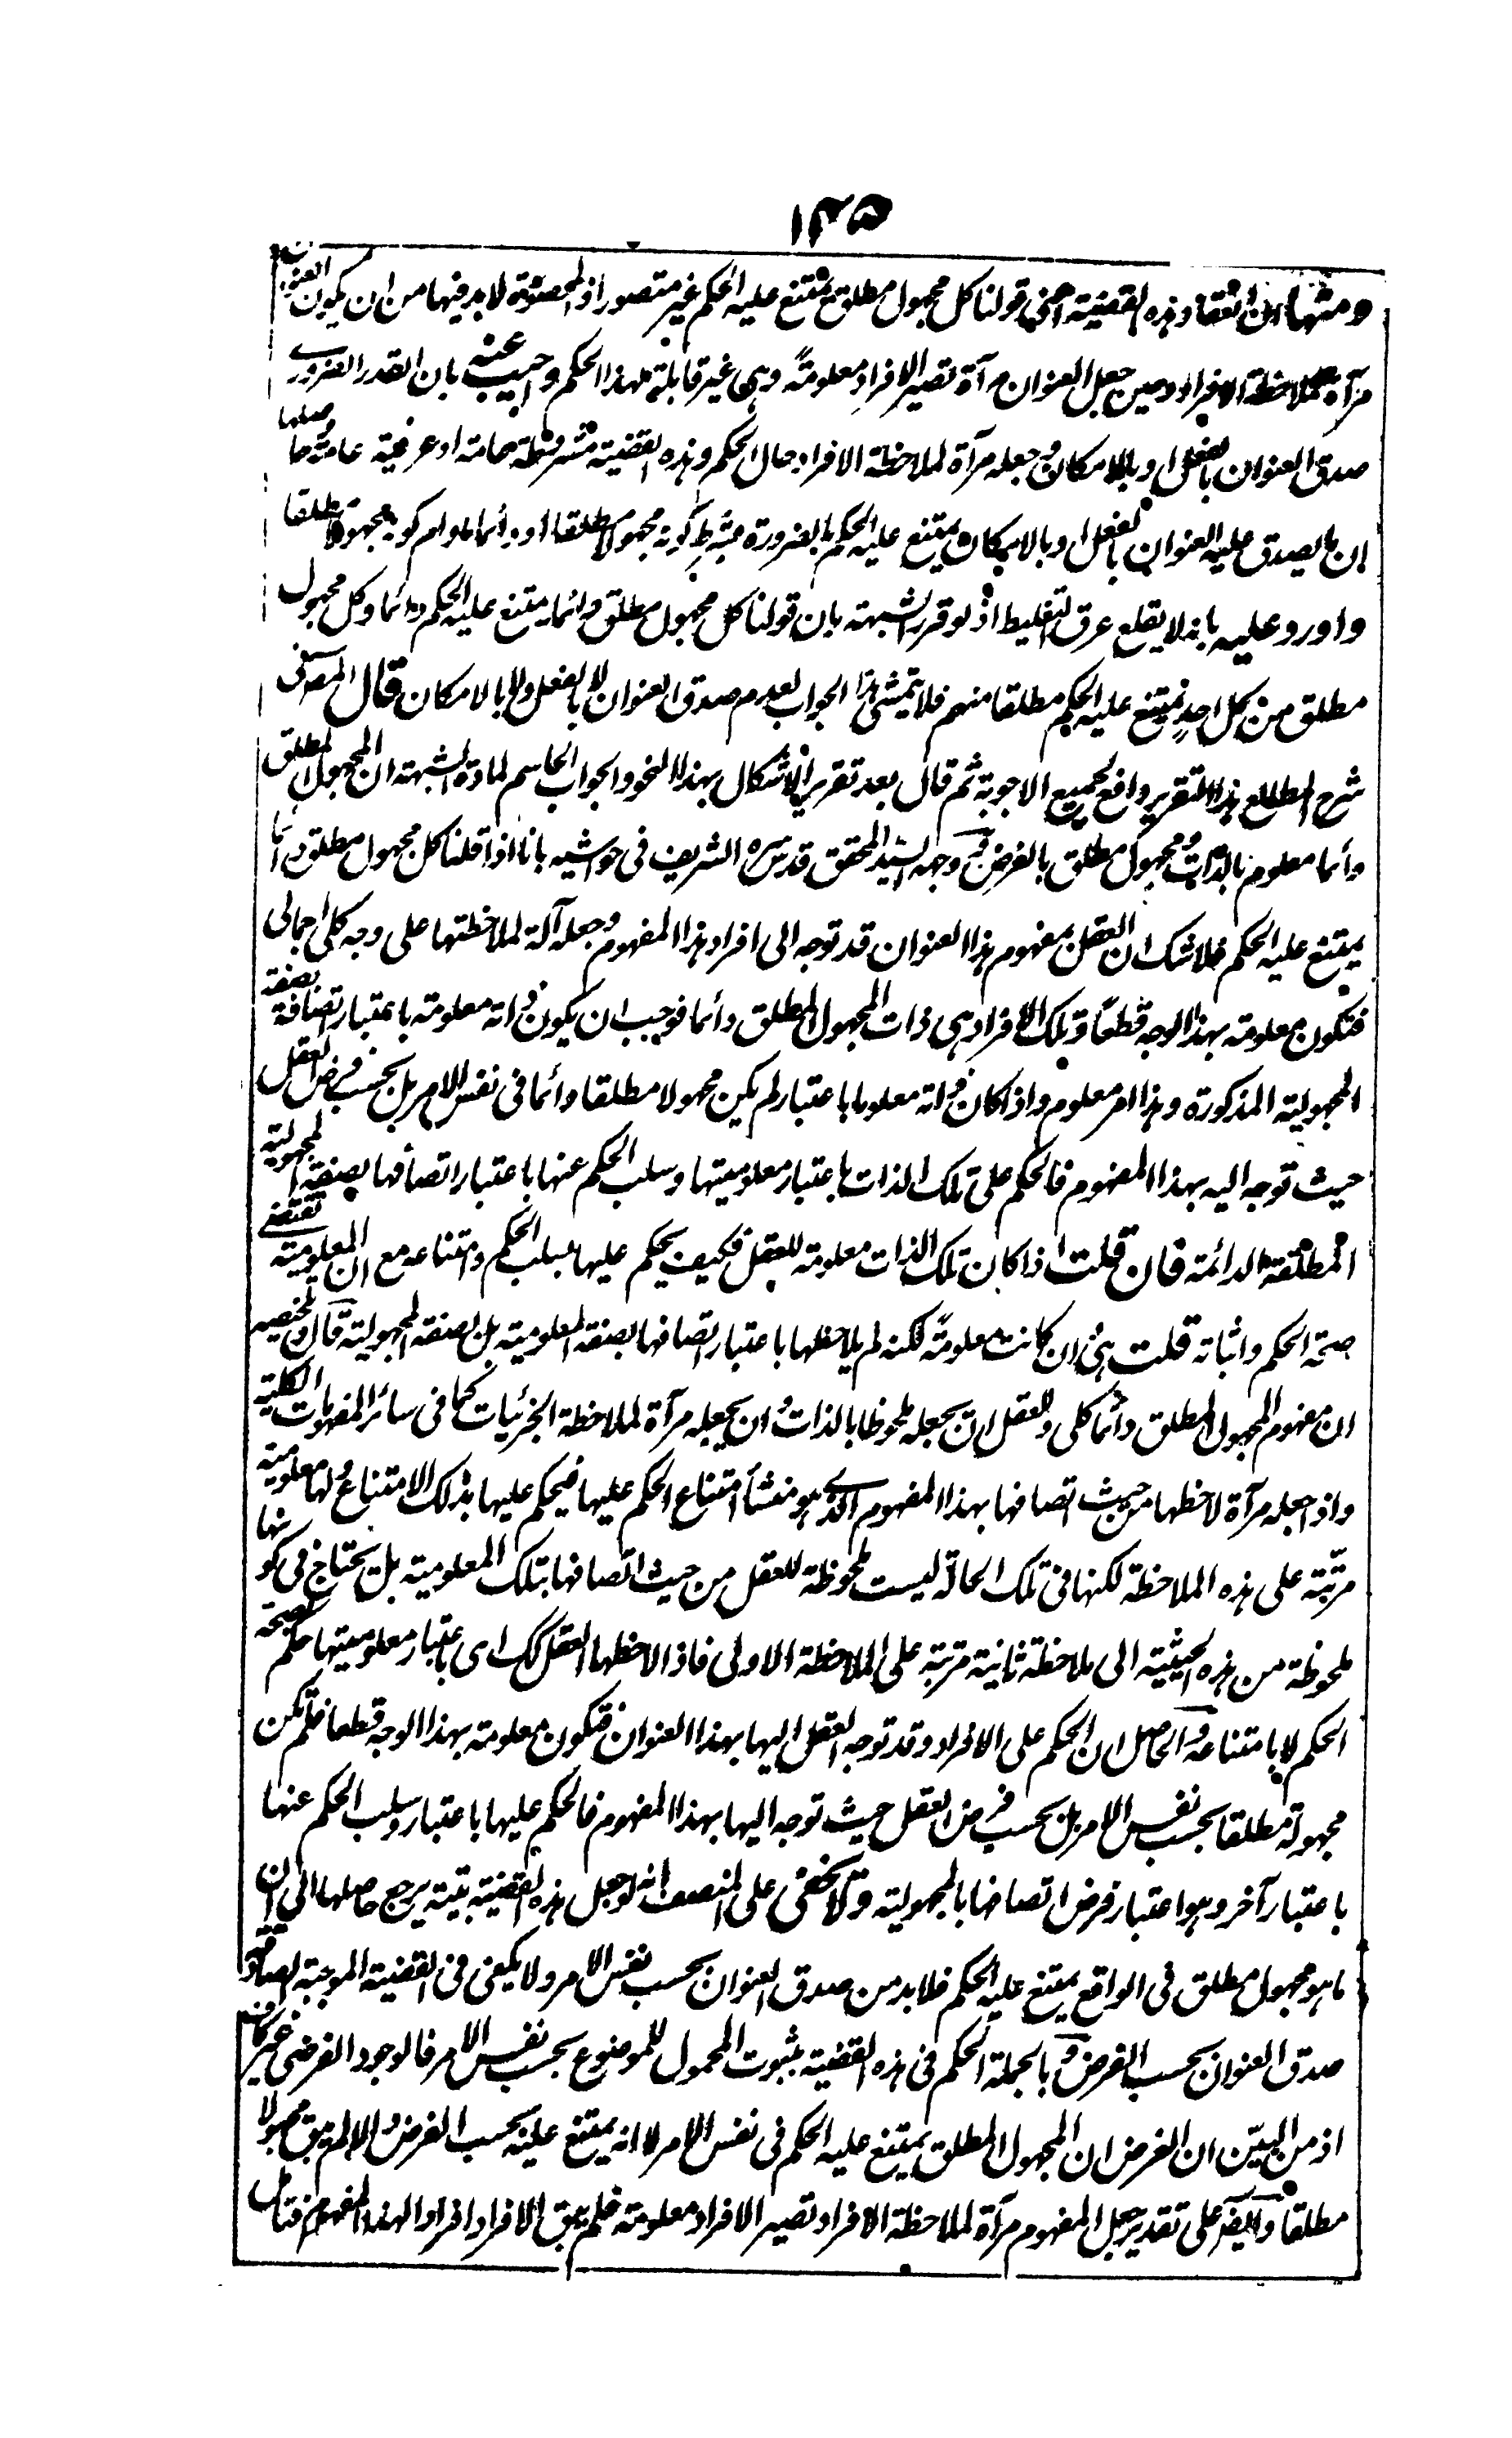 ١٣٥
ومنها ان انعقاد هذه القضية اعنى قولنا كل مجهول مطلق يمتنع عليه الحكم غير متصور اذ المحصورة لا بد فيها من ان يكون العنوان
مرآة لملاحظة الافراد وحين جعل العنوان مرآة تصير الافراد معلومة وهى غير قابلة لهذا الحكم واجيب عنه بان القدر الضرورى
صدق العنوان بالفعل او بالامكان وجعله مرآة لملاحظة الافراد حال الحكم وهذه القضية مشروطة عامة او عرفية عامة حاصلها
ان ما يصدق عليه العنوان بالفعل او بالامكان يمتنع عليه الحكم بالضرورة بشرط كونه مجهولا مطلقا او دائما مادام كونه مجهولا مطلقا
واورد عليه بانه لا يقلع عرق التغليط اذ لو قرر الشبهة بان قولنا كل مجهول مطلق دائما يمتنع عليه الحكم دائما وكل مجهول
مطلق من كل احد يمتنع عليه الحكم مطلقا منهم فلا يتمشى هذا الجواب لعدم صدق العنوان لا بالفعل ولا بالامكان قال المص فى
شرح المطالع هذا التقرير دافع لجميع الاجوبة ثم قال بعد تقرير الاشكال بهذا النحو والجواب الحاسم لمادة الشبهة ان المجهول المطلق
دائما معلوم بالذات ومجهول مطلق بالفرض وجهه السيد المحقق قدس سره الشريف فى حواشيه بانا اذا قلنا كل مجهول مطلق دائما
يمتنع عليه الحكم فلا شك ان العقل بمفهوم هذا العنوان قد توجه الى افراد هذا المفهوم وجعله آلة لملاحظتها على وجه كلى اجمالى
فتكون معلومة بهذا الوجه قطعا وتلك الافراد هى ذات المجهول المطلق دائما فوجب ان يكون ذاته معلومة باعتبار اتصافه بصفة
المجهولية المذكورة وهذا امر معلوم واذا كان ذاته معلوما باعتبار لم يكن مجهولا مطلقا دائما فى نفس الامر بل بحسب فرض العقل
حيث توجه اليه بهذا المفهوم فالحكم على تلك الذات باعتبار معلوميتها وسلب الحكم عنها باعتبار اتصافها بصفة المجهولية
المطلقة الدائمة فان قلت اذا كان تلك الذات معلومة للعقل فكيف يحكم عليها بسلب الحكم وامتناعه مع ان المعلومية تقتضى
صحة الحكم واثباته قلت هى وان كانت معلومة لكنه لم يلاحظها باعتبار اتصافها بصفة المعلومية بل بصفة المجهولية قال وتلخيصه
ان مفهوم المجهول المطلق دائما كلى وللعقل ان يجعله ملحوظا بالذات وان يجعله مرآة لملاحظة الجزئيات كما فى سائر المفهومات الكلية
واذا جعله مرآة لاحظها من حيث اتصافها بهذا المفهوم الذى هو منشأ امتناع الحكم عليها فيحكم عليها بذلك الامتناع ولها معلومية
مرتبة على هذه الملاحظة لكنها فى تلك الحالة ليست ملحوظة للعقل من حيث اتصافها بتلك المعلومية بل يحتاج فى كونها
ملحوظة من هذه الحيثية الى ملاحظة ثانية مرتبة على الملاحظة الاولى فاذا لاحظها العقل كك اى باعتبار معلوميتها حكم بصحة
الحكم لا بامتناعه والحاصل ان الحكم على الافراد وقد توجه العقل اليها بهذا العنوان فتكون معلومة بهذا الوجه قطعا فلم تكن
مجهولة مطلقا بحسب نفس الامر بل بحسب فرض العقل حيث توجه اليها بهذا المفهوم فالحكم عليها باعتبار وسلب الحكم عنها
باعتبار آخر وهو اعتبار فرض اتصافها بالمجهولية ولا يخفى على المنصف انه لو جعل هذه القضية بتية يرجع حاصلها الى ان
ما هو مجهول مطلق فى الواقع يمتنع عليه الحكم فلا بد من صدق العنوان بحسب نفس الامر ولا يكفى فى القضية الموجبة الصادقة
صدق العنوان بحسب الفرض وبالجملة الحكم فى هذه القضية بثبوت المحمول للموضوع بحسب نفس الامر فالوجود الفرضى غير كاف
اذ من البين ان الغرض ان المجهول المطلق يمتنع عليه الحكم فى نفس الامر لا انه يمتنع عليه بحسب الفرض والا لم يبق مجهولا
مطلقا وايضا على تقدير جعل المفهوم مرآة لملاحظة الافراد تصير الافراد معلومة فلم تبق الافراد افرادا لهذا المفهوم فتأمل